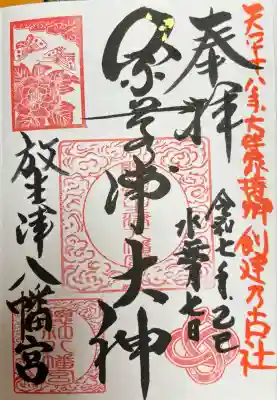 天平十八年大伴家持卿創建乃古社
奉拝
令和七年乙巳
水無月七日
大神
放生津八幡宮